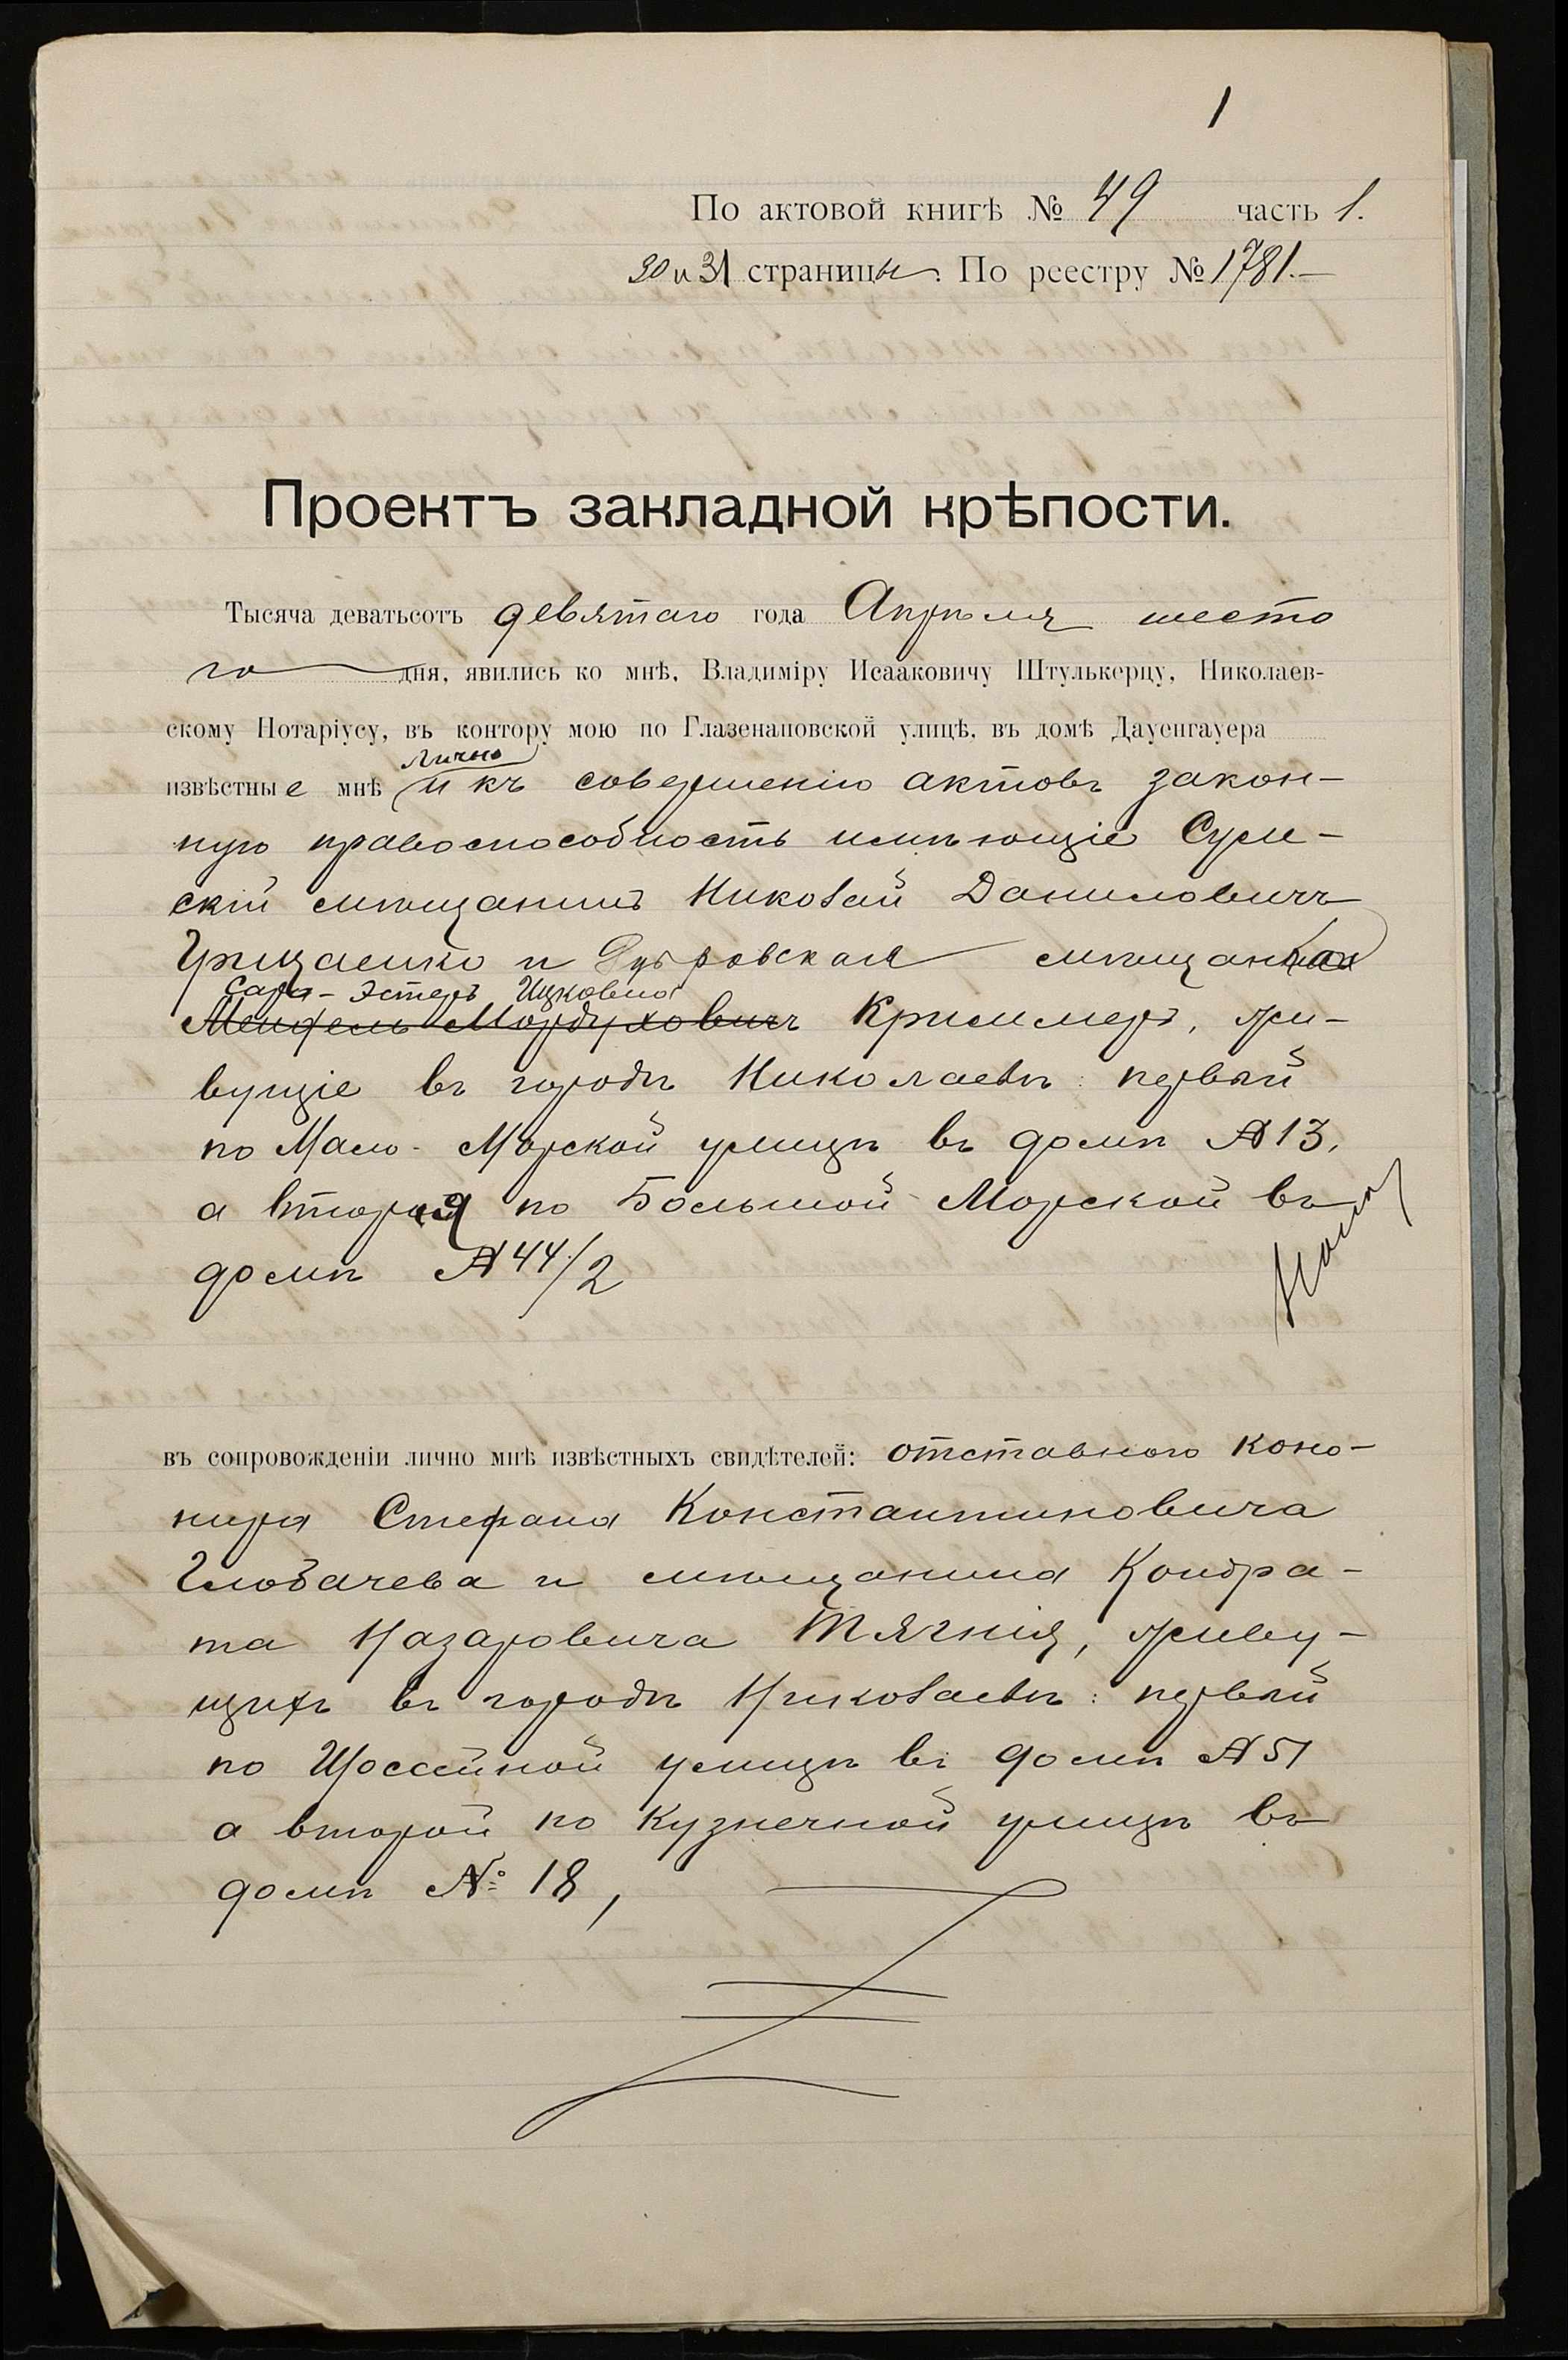 1
По актовой книгѣ № 49 часть 1.
30 и 31 страницы. По реестру № 1781.—
Проектъ закладной крѣпости.
Тысяча деватьсотъ девятаго года Апрѣля шесто
го дня, явились ко мнѣ, Владиміру Исааковичу Штулькерцу, Николаев-
скому Нотаріусу, въ контору мою по Глазенаповской улицѣ, въ домѣ Дауенгауера
лично
извѣстные мнѣ и къ совершенію актовъ закон-
ную правоспособность имѣющіе Сум-
скій мѣщанинъ Николай Даниловичъ
Грищенко и Дубровская мѣщанка
Сара-Эстеръ Ицковна
Мендель Мордуховичъ Криммеръ, жи-
вущіе въ городѣ Николаевѣ: первый
по Мало-Морской улицѣ въ домѣ № 13,
а вторая по Большой Морской въ
домѣ № 44/2
въ сопровожденіи лично мнѣ извѣстныхъ свидѣтелей: отставного коно-
нира Стефана Константиновича
Глобачева и мѣщанина Кондра-
та Назаровича Тягнія, живу-
щихъ въ городѣ Николаевѣ: первый
по Шоссейной улицѣ въ домѣ № 51
а второй по Кузнечной улицѣ въ
домѣ № 18,